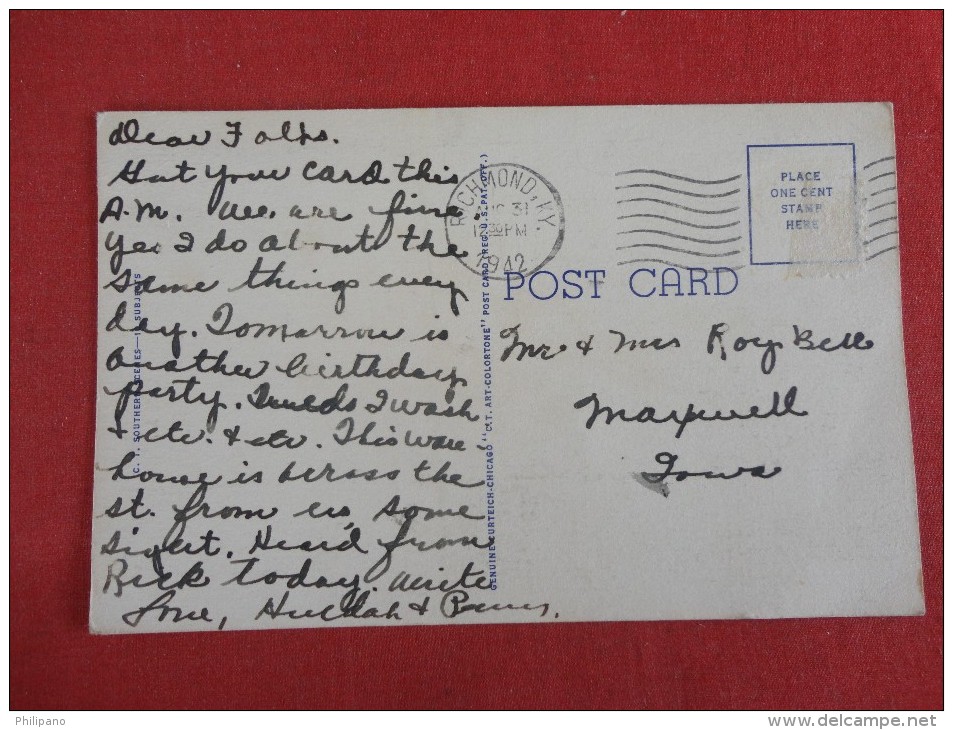 Dear Folks.
Got your card this
A.M. We are fine
Yes I do about the
same things every
day. Tomorrow is
another birthday
party. I wash
& etc. & etc. This ware-
house is across the
st. from us, some
sight. Heard from
Rick today. Write
Love, Huldah &
C.T. SOUTHERN SCENES—SUBJECTS
GENUINE CURTEICH-CHICAGO "C.T. ART-COLORTONE" POST CARD (REG. U.S. PAT. OFF.)
RICHMOND, KY.
31
12 30 PM
1942
PLACE
ONE CENT
STAMP
HERE
POST CARD
Mr & Mrs Roy Bell
Maxwell
Iowa
Philipano
www.delcampe.net